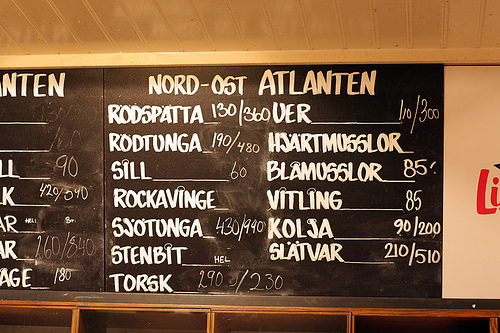 NTEN
LL 90
K 420/540
AR HEL
AR 260/540
AGE 180
NORD-OST ATLANTEN
RÖDSPÄTTA 130/360
RÖDTUNGA 190/480
SILL 60
ROCKAVINGE
SJÖTUNGA 430/990
STENBIT HEL
TORSK 290/230
UER 110/300
HJÄRTMUSSLOR
BLÅMUSSLOR 85:
VITLING 85
KOLJA 90/200
SLÄTVAR 210/510
Li